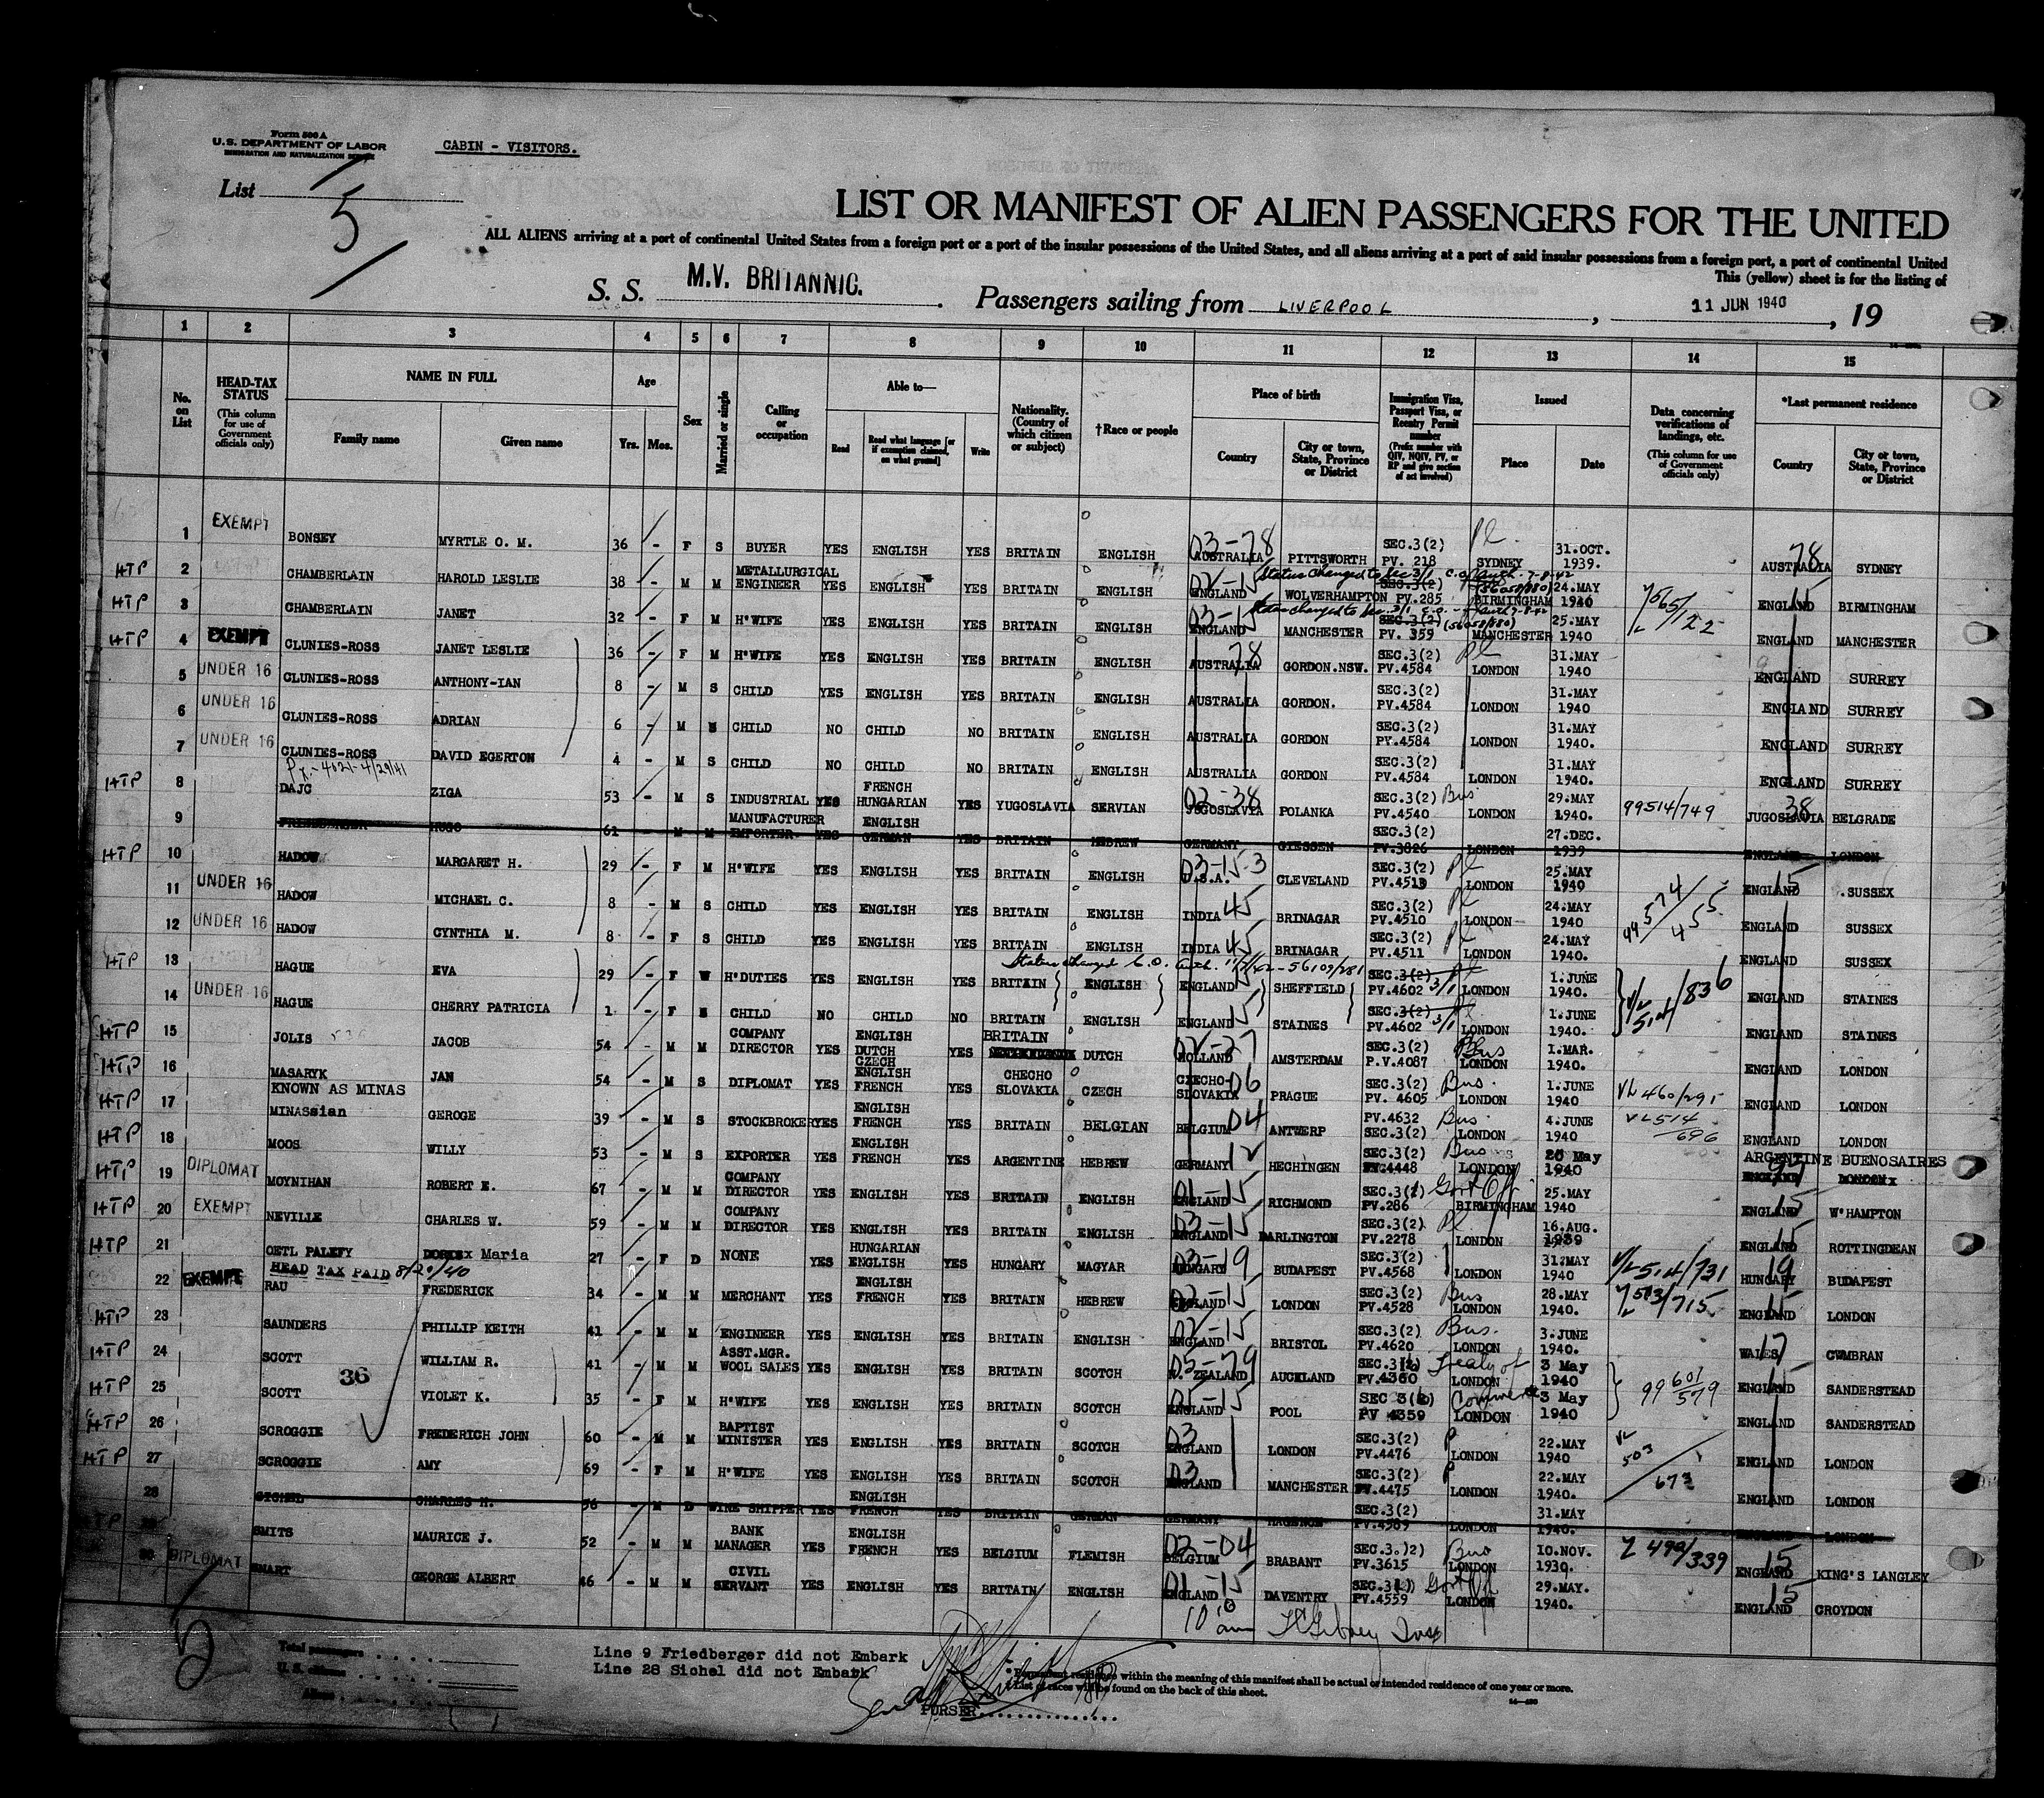 Form 500 A
U.S. DEPARTMENT OF LABOR
IMMIGRATION AND NATURALIZATION SERVICE
CABIN - VISITORS.
List 5
LIST OR MANIFEST OF ALIEN PASSENGERS FOR THE UNITED
ALL ALIENS arriving at a port of continental United States from a foreign port or a port of the insular possessions of the United States, and all aliens arriving at a port of said insular possessions from a foreign port, a port of continental United
This (yellow) sheet is for the listing of
S. S. M.V. BRITANNIC. Passengers sailing from LIVERPOOL, 11 JUN 1940, 19
1 2 3 4 5 6 7 8 9 10 11 12 13 14 15
No. on List
HEAD-TAX STATUS (This column for use of Government officials only)
NAME IN FULL Family name Given name
Age Yrs. Mos.
Sex
Married or single
Calling or occupation
Able to— Read Read what language [or if exemption claimed, on what ground] Write
Nationality. (Country of which citizen or subject)
†Race or people
Place of birth Country City or town, State, Province or District
Immigration Visa, Passport Visa, or Reentry Permit number (Prefix number with QIV, NQIV, PV, or RP and give section of act involved)
Issued Place Date
Data concerning verifications of landings, etc. (This column for use of Government officials only)
*Last permanent residence Country City or town, State, Province or District
1 EXEMPT BONSEY MYRTLE O. M. 36 - F S BUYER YES ENGLISH YES BRITAIN ENGLISH 03-78 AUSTRALIA PITTSWORTH SEC.3(2) PV. 218 Pl. SYDNEY 31.OCT. 1939. 78 AUSTRALIA SYDNEY
HTP 2 CHAMBERLAIN HAROLD LESLIE 38 - M M METALLURGICAL ENGINEER YES ENGLISH YES BRITAIN ENGLISH ENGLAND WOLVERHAMPTON SEC.3(2) PV.285 Status changed to Sec 3/1 C.O. auth. 7-8-42 (56058/880) BIRMINGHAM 24.MAY 1940 ENGLAND BIRMINGHAM
HTP 3 CHAMBERLAIN JANET 32 - F M H'WIFE YES ENGLISH YES BRITAIN ENGLISH 03-15 ENGLAND MANCHESTER SEC.3(2) PV. 359 Status changed to Sec. 3/1 C.O. auth 7-8-42 (56058/880) MANCHESTER 25.MAY 1940 ENGLAND MANCHESTER
HTP 4 EXEMPT CLUNIES-ROSS JANET LESLIE 36 - F M H'WIFE YES ENGLISH YES BRITAIN ENGLISH 78 AUSTRALIA GORDON.NSW. SEC.3(2) PV.4584 Pl LONDON 31.MAY 1940 ENGLAND SURREY
5 UNDER 16 CLUNIES-ROSS ANTHONY-IAN 8 - M S CHILD YES ENGLISH YES BRITAIN ENGLISH AUSTRALIA GORDON. SEC.3(2) PV.4584 LONDON 31.MAY 1940 ENGLAND SURREY
6 UNDER 16 CLUNIES-ROSS ADRIAN 6 - M S CHILD NO CHILD NO BRITAIN ENGLISH AUSTRALIA GORDON SEC.3(2) PV.4584 LONDON 31.MAY 1940. ENGLAND SURREY
7 UNDER 16 CLUNIES-ROSS DAVID EGERTON 4 - M S CHILD NO CHILD NO BRITAIN ENGLISH AUSTRALIA GORDON SEC.3(2) PV.4584 LONDON 31.MAY 1940. ENGLAND SURREY
HTP 8 DAJC ZIGA 53 - M S INDUSTRIAL MANUFACTURER YES FRENCH HUNGARIAN ENGLISH YES YUGOSLAVIA SERVIAN 02-38 JUGOSLAVIA POLANKA SEC.3(2) PV.4540 Bus LONDON 29.MAY 1940. 99514/749 38 JUGOSLAVIA BELGRADE
9 FRIEDBERGER HUGO 61 - M M IMPORTER. YES GERMAN YES BRITAIN HEBREW GERMANY GIESSEN SEC.3(2) PV.3826 LONDON 27.DEC. 1939 ENGLAND LONDON
HTP 10 HADOW MARGARET H. 29 - F M H'WIFE YES ENGLISH YES BRITAIN ENGLISH 03-15-3 U.S.A. CLEVELAND SEC.3(2) PV.4513 Pl LONDON 25.MAY 1940 15 ENGLAND SUSSEX
11 UNDER 16 HADOW MICHAEL C. 8 - M S CHILD YES ENGLISH YES BRITAIN ENGLISH INDIA 45 BRINAGAR SEC.3(2) PV.4510 Pl LONDON 24.MAY 1940 ENGLAND SUSSEX
12 UNDER 16 HADOW CYNTHIA M. 8 - F S CHILD YES ENGLISH YES BRITAIN ENGLISH INDIA 45 BRINAGAR SEC.3(2) PV.4511 Pl LONDON 24.MAY 1940. ENGLAND SUSSEX
Status changed C.O. auth. 11/7/42-56109/281
HTP 13 HAGUE EVA 29 - F W H'DUTIES YES ENGLISH YES BRITAIN ENGLISH ENGLAND SHEFFIELD SEC.3(2) PV.4602 3/1 LONDON 1.JUNE 1940. ENGLAND STAINES
14 UNDER 16 HAGUE CHERRY PATRICIA 1 - F S CHILD NO CHILD NO BRITAIN ENGLISH ENGLAND 15 STAINES SEC.3(2) PV.4602 3/1 LONDON 1.JUNE 1940. ENGLAND STAINES
HTP 15 JOLIS JACOB 54 - M M COMPANY DIRECTOR YES ENGLISH DUTCH YES BRITAIN DUTCH HOLLAND AMSTERDAM SEC.3(2) P.V.4087 Bus LONDON 1.MAR. 1940. ENGLAND LONDON
HTP 16 MASARYK JAN 54 - M S DIPLOMAT YES CZECH ENGLISH FRENCH YES CHECHO SLOVAKIA CZECH CZECHO-SLOVAKIA 06 PRAGUE SEC.3(2) PV. 4605 Bus. LONDON 1.JUNE 1940 ENGLAND LONDON
KNOWN AS MINAS
HTP 17 MINASsian GEROGE 39 - M S STOCKBROKER YES ENGLISH FRENCH YES BRITAIN BELGIAN BELGIUM 04 ANTWERP PV.4632 SEC.3(2) Bus LONDON 4.JUNE 1940 VL514/696 ENGLAND LONDON
HTP 18 MOOS WILLY 53 - M S EXPORTER YES ENGLISH FRENCH YES ARGENTINE HEBREW GERMANY 12 HECHINGEN SEC.3(2) PV.4448 Bus LONDON 20 May 1940 ARGENTINE BUENOSAIRES
HTP 19 DIPLOMAT MOYNIHAN ROBERT E. 67 - M M COMPANY DIRECTOR YES ENGLISH YES BRITAIN ENGLISH 01-15 ENGLAND RICHMOND SEC.3(1) PV.286 Govt Off BIRMINGHAM 25.MAY 1940 15 ENGLAND W'HAMPTON
HTP 20 EXEMPT NEVILLE CHARLES W. 59 - M M COMPANY DIRECTOR YES ENGLISH YES BRITAIN ENGLISH 03-15 ENGLAND DARLINGTON SEC.3(2) PV.2278 Pl LONDON 16.AUG. 1939 15 ENGLAND ROTTINGDEAN
HTP 21 OETL PALFFY Maria 27 - F D NONE YES HUNGARIAN ENGLISH YES HUNGARY MAGYAR 03-19 HUNGARY BUDAPEST SEC.3(2) PV.4568 LONDON 31.MAY 1940 VL514/731 19 HUNGARY BUDAPEST
HEAD TAX PAID 8/20/40
22 EXEMPT RAU FREDERICK 34 - M M MERCHANT YES ENGLISH FRENCH YES BRITAIN HEBREW 02-15 ENGLAND LONDON SEC.3(2) PV.4528 Bus LONDON 28.MAY 1940. 513/715 15 ENGLAND LONDON
HTP 23 SAUNDERS PHILLIP KEITH 41 - M M ENGINEER YES ENGLISH YES BRITAIN ENGLISH 02-15 ENGLAND BRISTOL SEC.3(2) PV.4620 Bus. LONDON 3.JUNE 1940. 17 WALES CWMBRAN
HTP 24 SCOTT WILLIAM R. 41 - M M ASST.MGR. WOOL SALES YES ENGLISH YES BRITAIN SCOTCH 05-79 N. ZEALAND AUCKLAND PV.4360 Treaty of LONDON 3 May 1940 99 601/579 ENGLAND SANDERSTEAD
36
HTP 25 SCOTT VIOLET K. 35 - F M H'WIFE YES ENGLISH YES BRITAIN SCOTCH 05-15 ENGLAND POOL PV 4359 Commerce LONDON 3 May 1940 ENGLAND SANDERSTEAD
HTP 26 SCROGGIE FREDERICH JOHN 60 - M M BAPTIST MINISTER YES ENGLISH YES BRITAIN SCOTCH 03 ENGLAND LONDON SEC.3(2) PV.4476 P LONDON 22.MAY 1940 VL 503/673 ENGLAND LONDON
HTP 27 SCROGGIE AMY 69 - F M H'WIFE YES ENGLISH YES BRITAIN SCOTCH 03 ENGLAND MANCHESTER SEC.3(2) PV.4475 P LONDON 22.MAY 1940. ENGLAND LONDON
28 SICHEL CHARLES H. 56 - M D WINE SHIPPER YES ENGLISH FRENCH YES BRITAIN GERMAN GERMANY SEC.3(2) PV.4589 LONDON 31.MAY 1940. ENGLAND LONDON
HTP 29 SMITS MAURICE J. 52 - M M BANK MANAGER YES ENGLISH FRENCH YES BELGIUM FLEMISH 02-04 BELGIUM BRABANT PV.3615 Bus LONDON 10.NOV. 1939. 499/339 15 ENGLAND KING'S LANGLEY
30 DIPLOMAT SMART GEORGE ALBERT 46 - M M CIVIL SERVANT YES ENGLISH YES BRITAIN ENGLISH 01-15 ENGLAND DAVENTRY SEC.3(1) PV.4559 Govt Off LONDON 29.MAY. 1940. 15 ENGLAND CROYDON
Total passengers
U.S. citizens
Aliens
Line 9 Friedberger did not Embark
Line 28 Sichel did not Embark
* Permanent residence within the meaning of this manifest shall be actual or intended residence of one year or more.
† List of races will be found on the back of this sheet.
PURSER